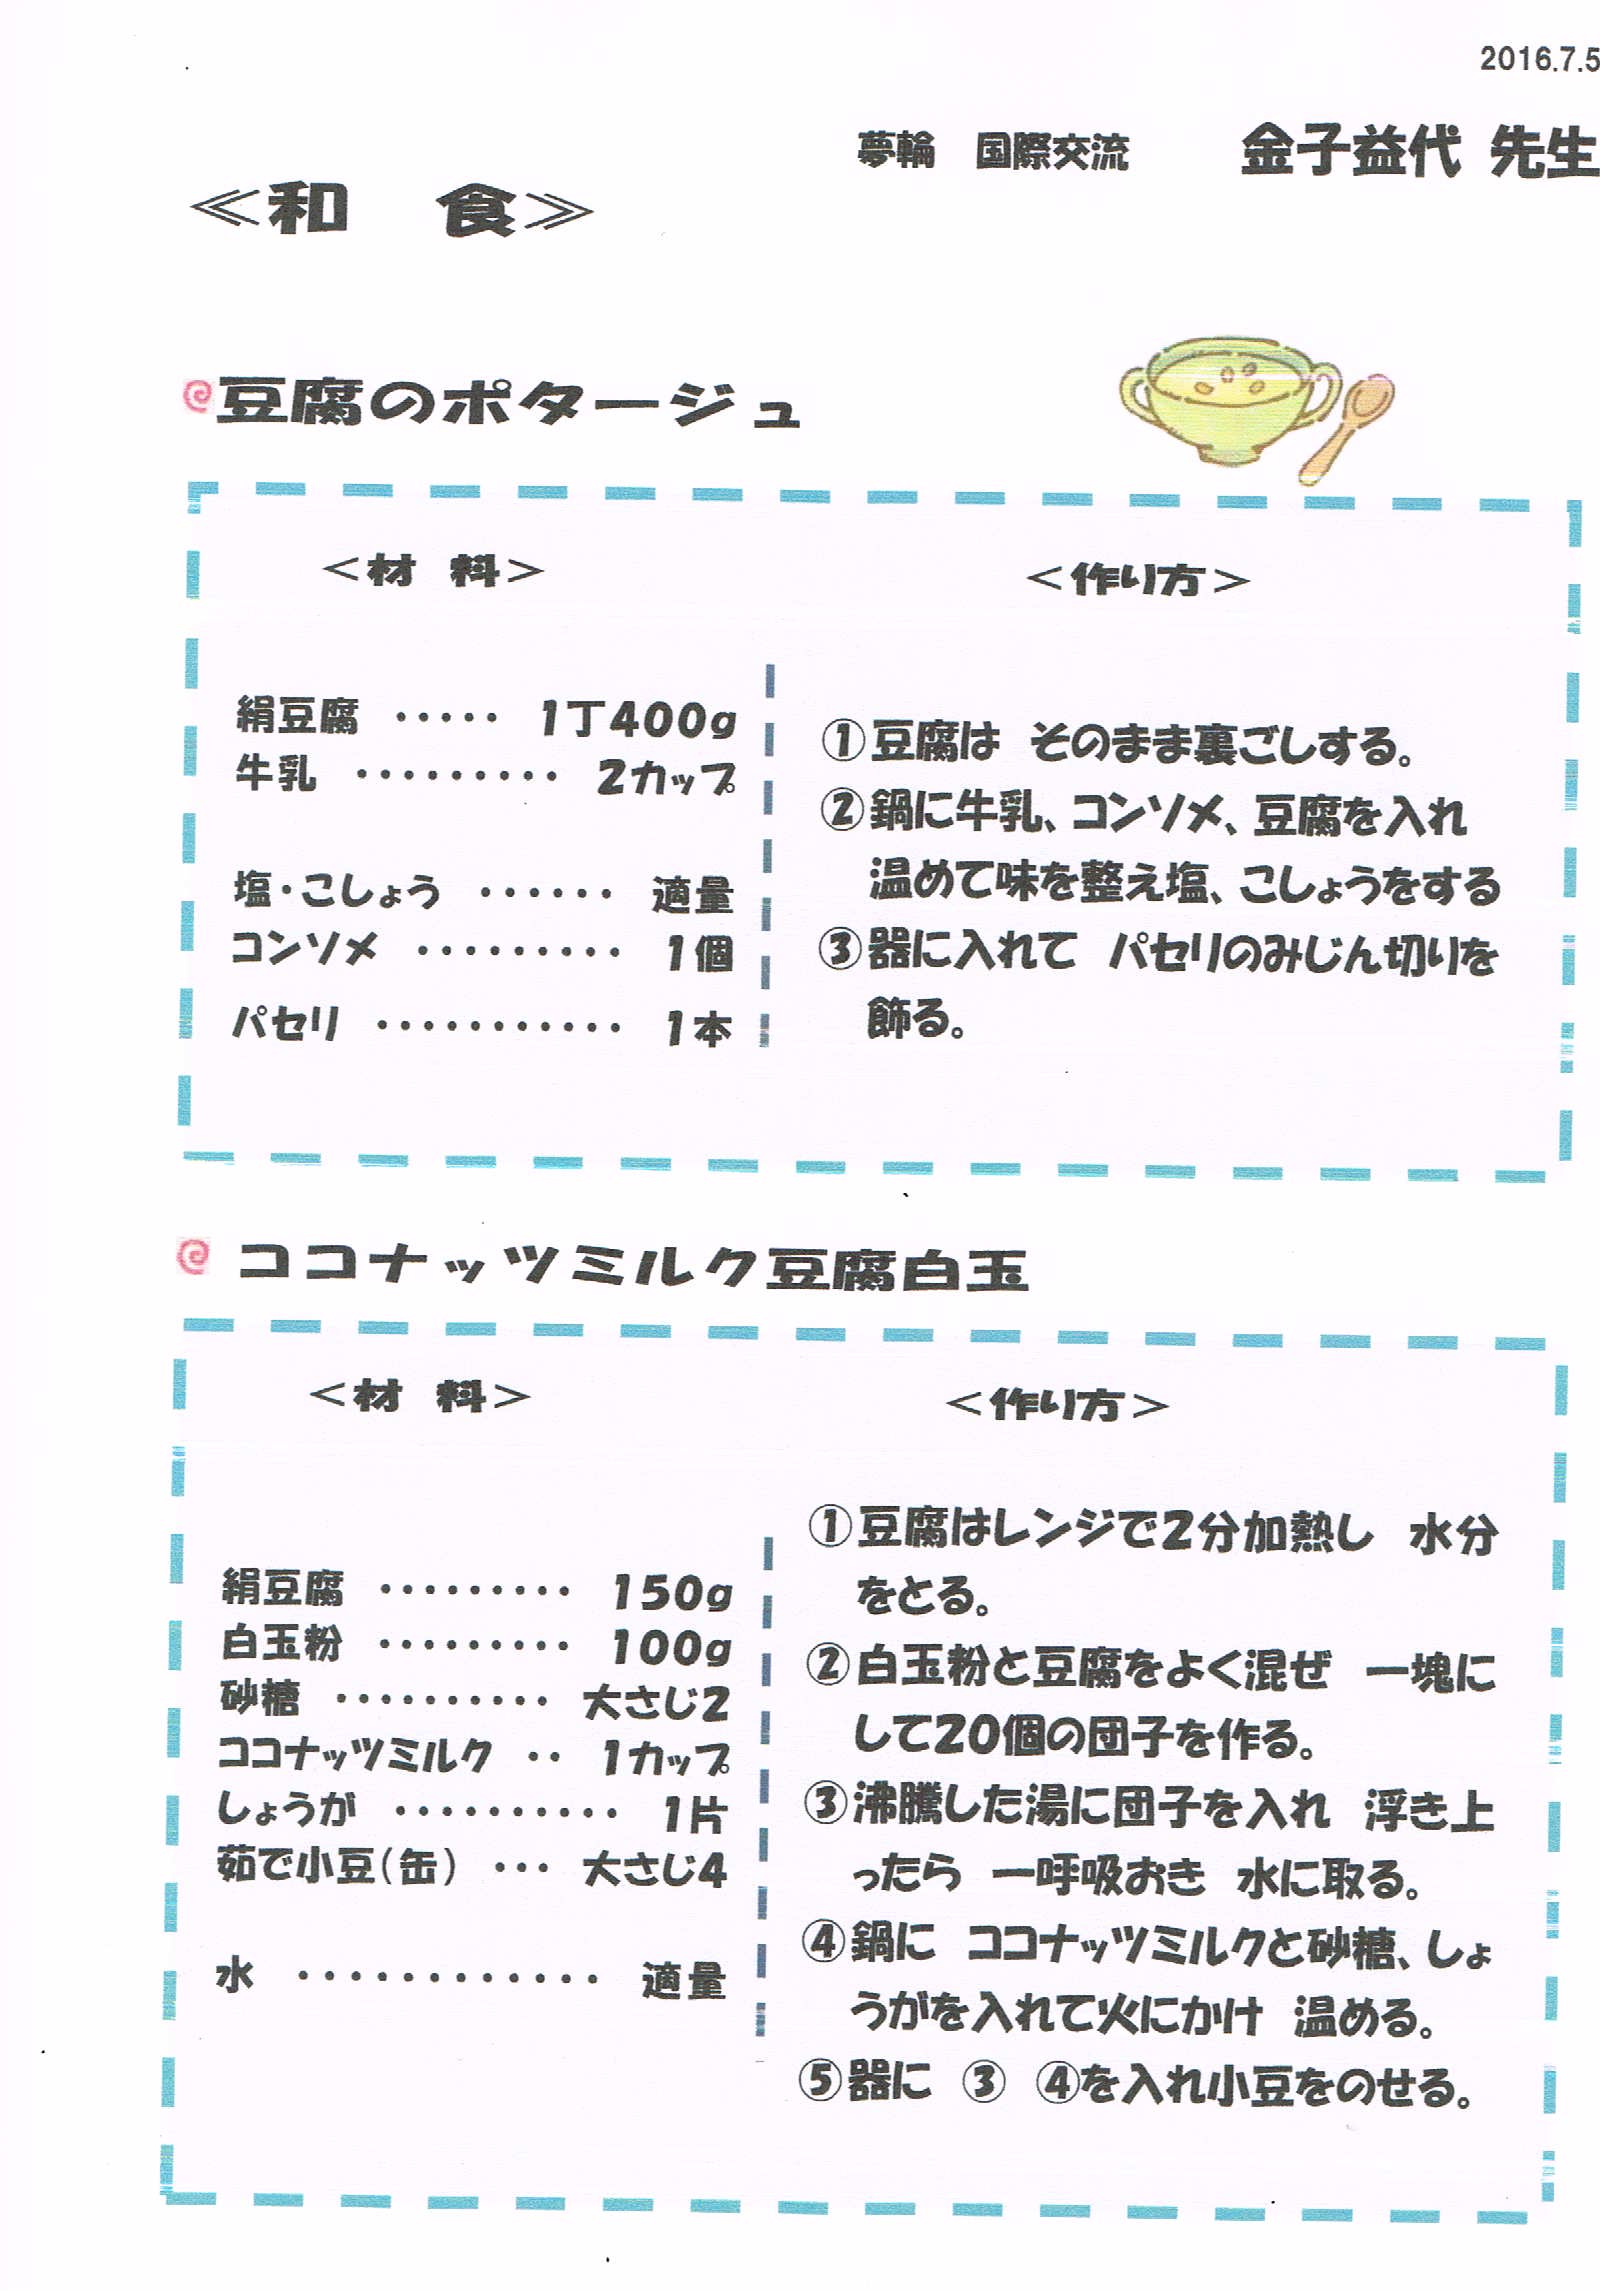 2016.7.5
夢輪　国際交流　　金子益代 先生
≪和　食≫
豆腐のポタージュ
＜材　料＞
絹豆腐 ・・・・・ 1丁400g
牛乳 ・・・・・・・・・ 2カップ
塩・こしょう ・・・・・・ 適量
コンソメ ・・・・・・・・・ 1個
パセリ ・・・・・・・・・・・ 1本
＜作り方＞
①豆腐は　そのまま裏ごしする。
②鍋に牛乳、コンソメ、豆腐を入れ
温めて味を整え塩、こしょうをする
③器に入れて　パセリのみじん切りを
飾る。
ココナッツミルク豆腐白玉
＜材　料＞
絹豆腐 ・・・・・・・・・ 150g
白玉粉 ・・・・・・・・・ 100g
砂糖 ・・・・・・・・・・ 大さじ2
ココナッツミルク ・・ 1カップ
しょうが ・・・・・・・・・・ 1片
茹で小豆(缶) ・・・ 大さじ4
水 ・・・・・・・・・・・・・ 適量
＜作り方＞
①豆腐はレンジで2分加熱し　水分
をとる。
②白玉粉と豆腐をよく混ぜ　一塊に
して20個の団子を作る。
③沸騰した湯に団子を入れ　浮き上
ったら　一呼吸おき　水に取る。
④鍋に　ココナッツミルクと砂糖、しょ
うがを入れて火にかけ　温める。
⑤器に　③　④を入れ小豆をのせる。